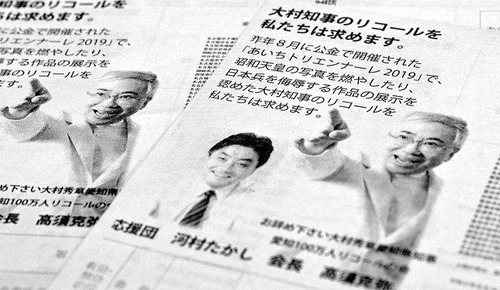 大村知事のリコールを
私たちは求めます。
昨年8月に公金で開催された
「あいちトリエンナーレ2019」で、
昭和天皇の写真を燃やしたり、
日本兵を侮辱する作品の展示を
認めた大村知事のリコールを
私たちは求めます。
お辞め下さい大村秀章愛知県知事
愛知100万人リコールの会
会長 高須克弥
応援団 河村たかし
村知事のリコールを
ちは求めます。
に公金で開催された
リエンナーレ2019」で、
の写真を燃やしたり、
辱する作品の展示を
事のリコールを
めます。
め下さい大村秀章愛知県
知100万人リコールの
会長 高須克弥